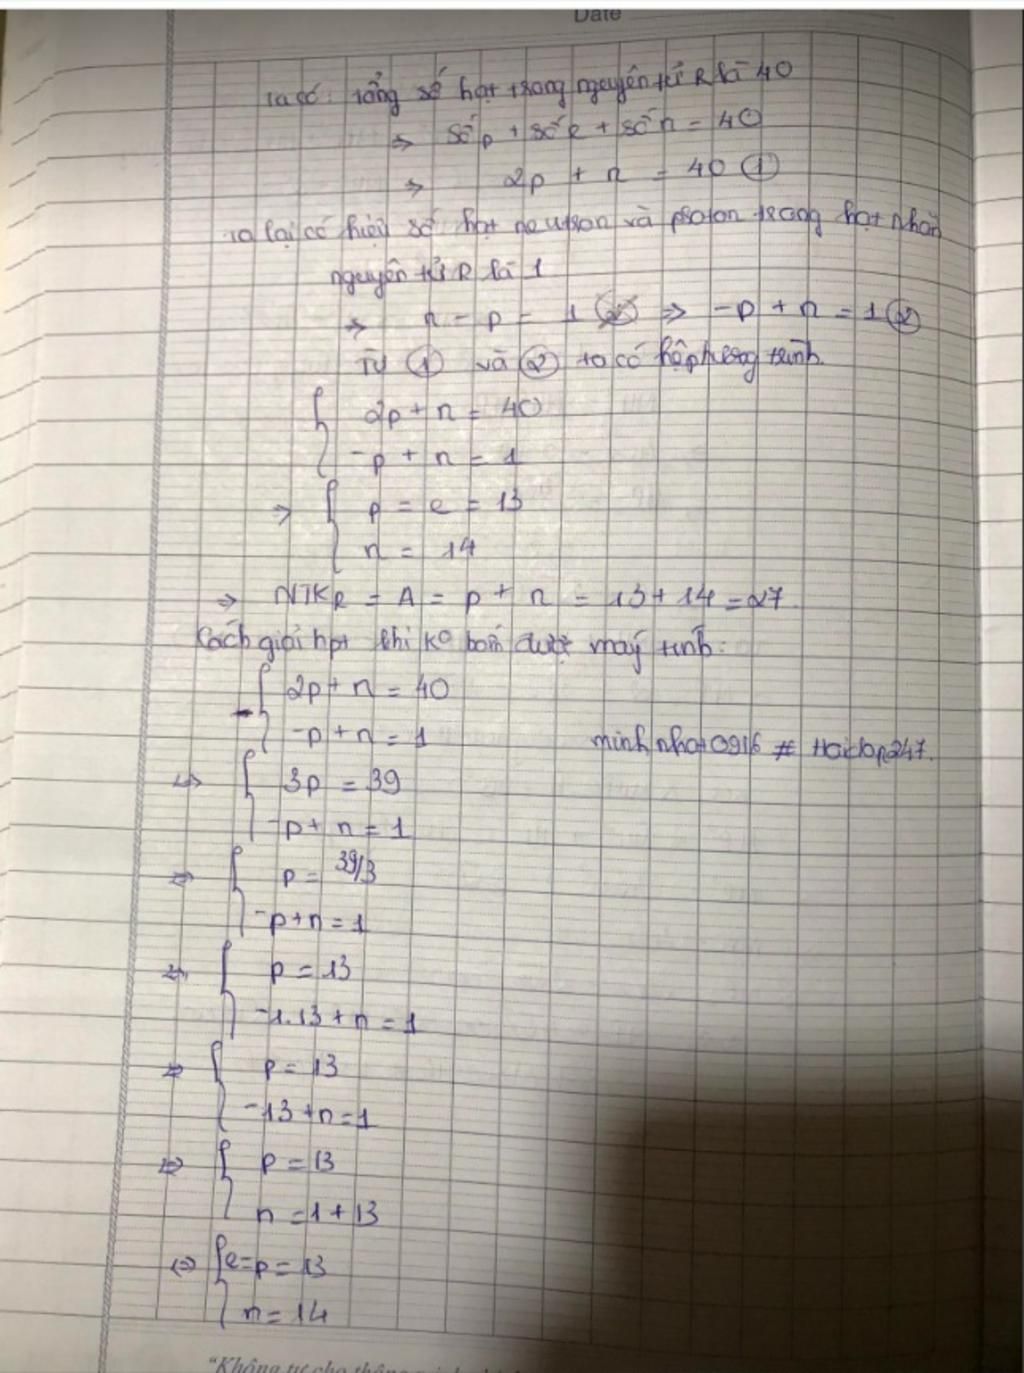 Date
Ta có: Tổng số hạt trong nguyên tử R là 40
=> Số p + số e + số n = 40
=> 2p + n = 40 ①
Ta lại có hiệu số hạt neutron và proton trong hạt nhân
nguyên tử R là 1
=> n - p = 1 => -p + n = 1 ②
Từ ① và ② ta có hệ phương trình
2p + n = 40
-p + n = 1
=> p = e = 13
n = 14
=> NTK_R = A = p + n = 13 + 14 = 27
Cách giải hpt khi ko bấm được máy tính:
- 2p + n = 40
-p + n = 1
minhnhat0916 # hoidap247.
<=> 3p = 39
-p + n = 1
<=> p = 39/3
-p + n = 1
<=> p = 13
-1.13 + n = 1
<=> p = 13
-13 + n = 1
<=> p = 13
n = 1 + 13
<=> e = p = 13
n = 14
"Không tự cho